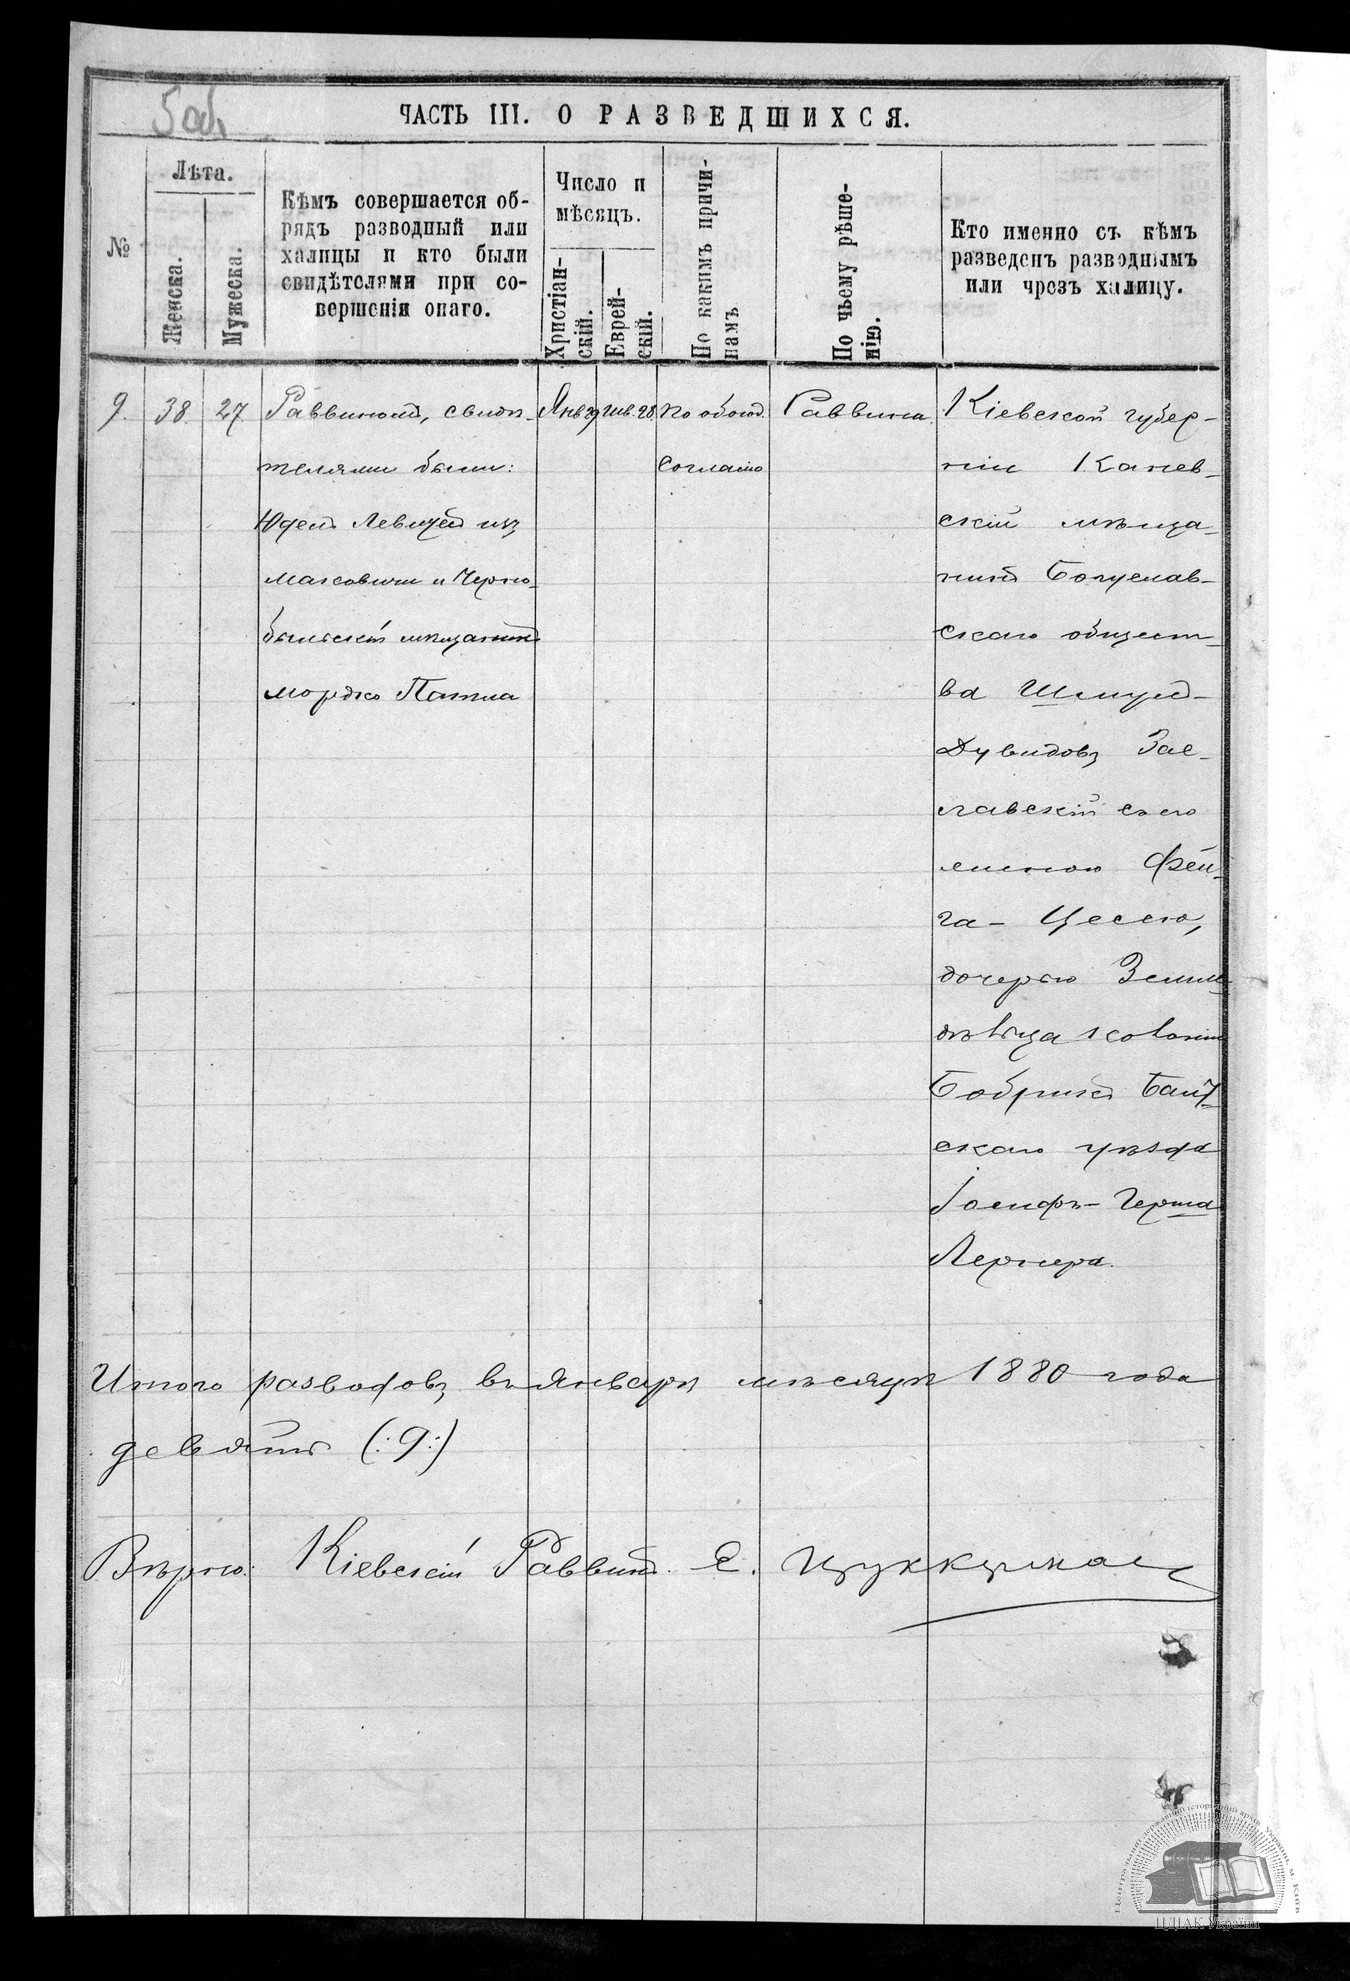 5 об.
ЧАСТЬ III. О РАЗВЕДШИХСЯ.
№
Лѣта.
Женска.
Мужеска.
Кѣмъ совершается об-
рядъ разводный или
халицы и кто были
свидѣтелями при со-
вершенія онаго.
Число и
мѣсяцъ.
Христіан-
скій.
Еврей-
скій.
По какимъ причи-
намъ
По чьему рѣше-
нію.
Кто именно съ кѣмъ
разведенъ разводнымъ
или чрезъ халицу.
9. 38. 27.
Раввиномъ, свидѣ-
телями были:
Юдель Левицъ изъ
Макович и Черно-
быльскій мѣщанинъ
Мордко Патла
Янв 29
Шв. 28
по обоюд.
согласію
Раввина.
Кіевской губер-
ніи Канев-
скій мѣща-
нинъ Богуслав-
скаго общест-
ва Шмуль-
Дувидовъ Зас-
лавскій съ его
женою Фей-
га - Цессею,
дочерью Земле-
дѣльца колоніи
Бобрикъ Балт-
скаго уѣзда
Іосифъ-Герша
Лернера.
Итого разводовъ въ Январѣ мѣсяцѣ 1880 года
девять (:9:)
Вѣрно: Кіевскій Раввинъ Е. Цуккерман
Центральний державний історичний архів України, м. Київ
ЦДІАК України